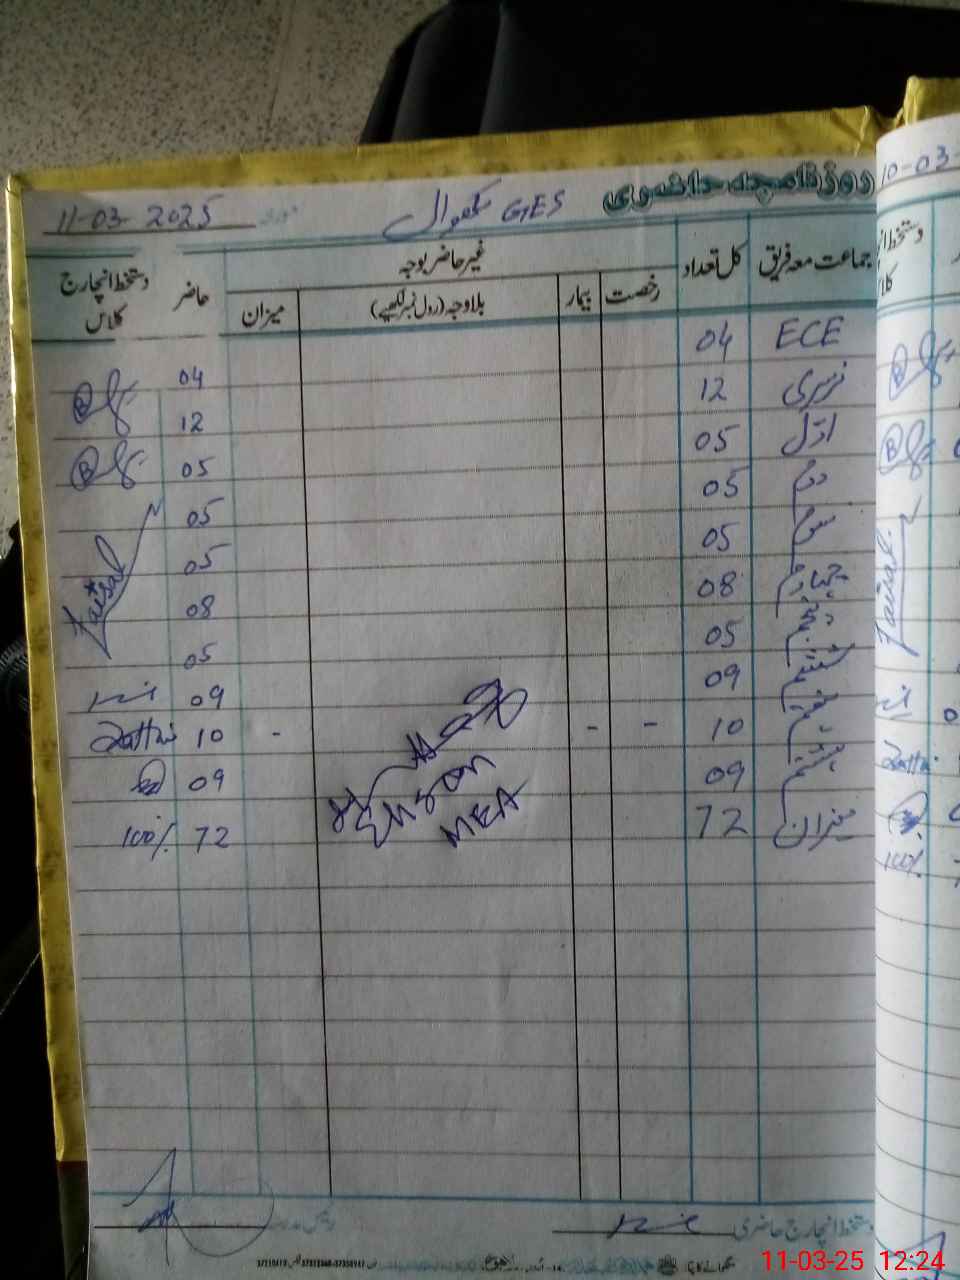 روزنامچہ حاضری
GES سکھوال
11-03-2025
جماعت معہ فریق کل تعداد غیر حاضر بوجہ حاضر دستخط انچارج کلاس
رخصت بیمار بلاوجہ (رول نمبر لکھیے) میزان
ECE 04 04
نرسری 12 12
اول 05 05
دوم 05 05
سوم 05 05
چہارم 08 08
پنجم 05 05
ششم 09 09
ہفتم 10 - - - 10
ہشتم 09 09
میزان 72 72 100%
Faisal
MEA
دستخط انچارج حاضری
رئیس مدرسہ
10-03-
دستخط
کلاس
Faisal
100%
11-03-25 12:24